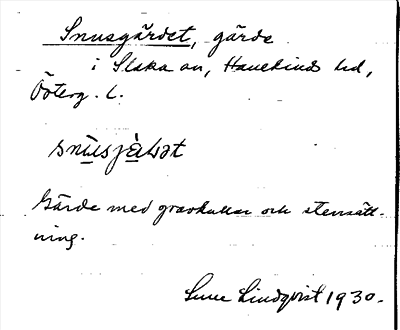 Snusgärdet, gärde
i Slaka sn, Hanekinds hd,
Österg. l.
Gärde med gravkullar och stensätt-
ning.
Sune Lindqvist 1930.